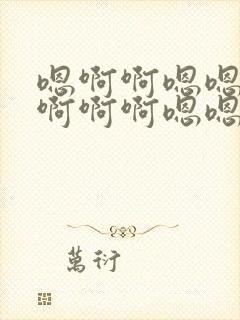 嗯啊啊嗯嗯
啊啊啊嗯嗯
萬衍